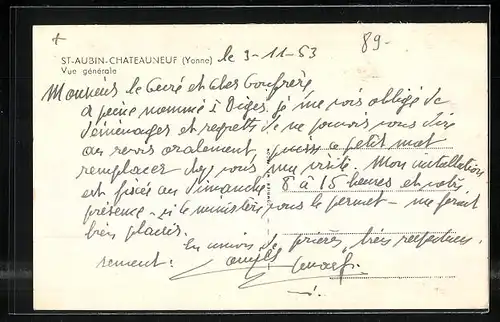 ST-AUBIN-CHATEAUNEUF (Yonne) le 3-11-53
89-
Vue générale
Monsieur le Curé et cher Confrère
à peine nommé à Diges, je me vois obligé de
déménager et regrette de ne pouvoir vous dire
au revoir oralement, puisse ce petit mot
remplacer chez vous ma visite. Mon installation
est fixée au dimanche 8 à 15 heures et votre
présence - si le ministère vous le permet - me ferait
bien plaisir.
En union de prières, bien respectueu-
sement :